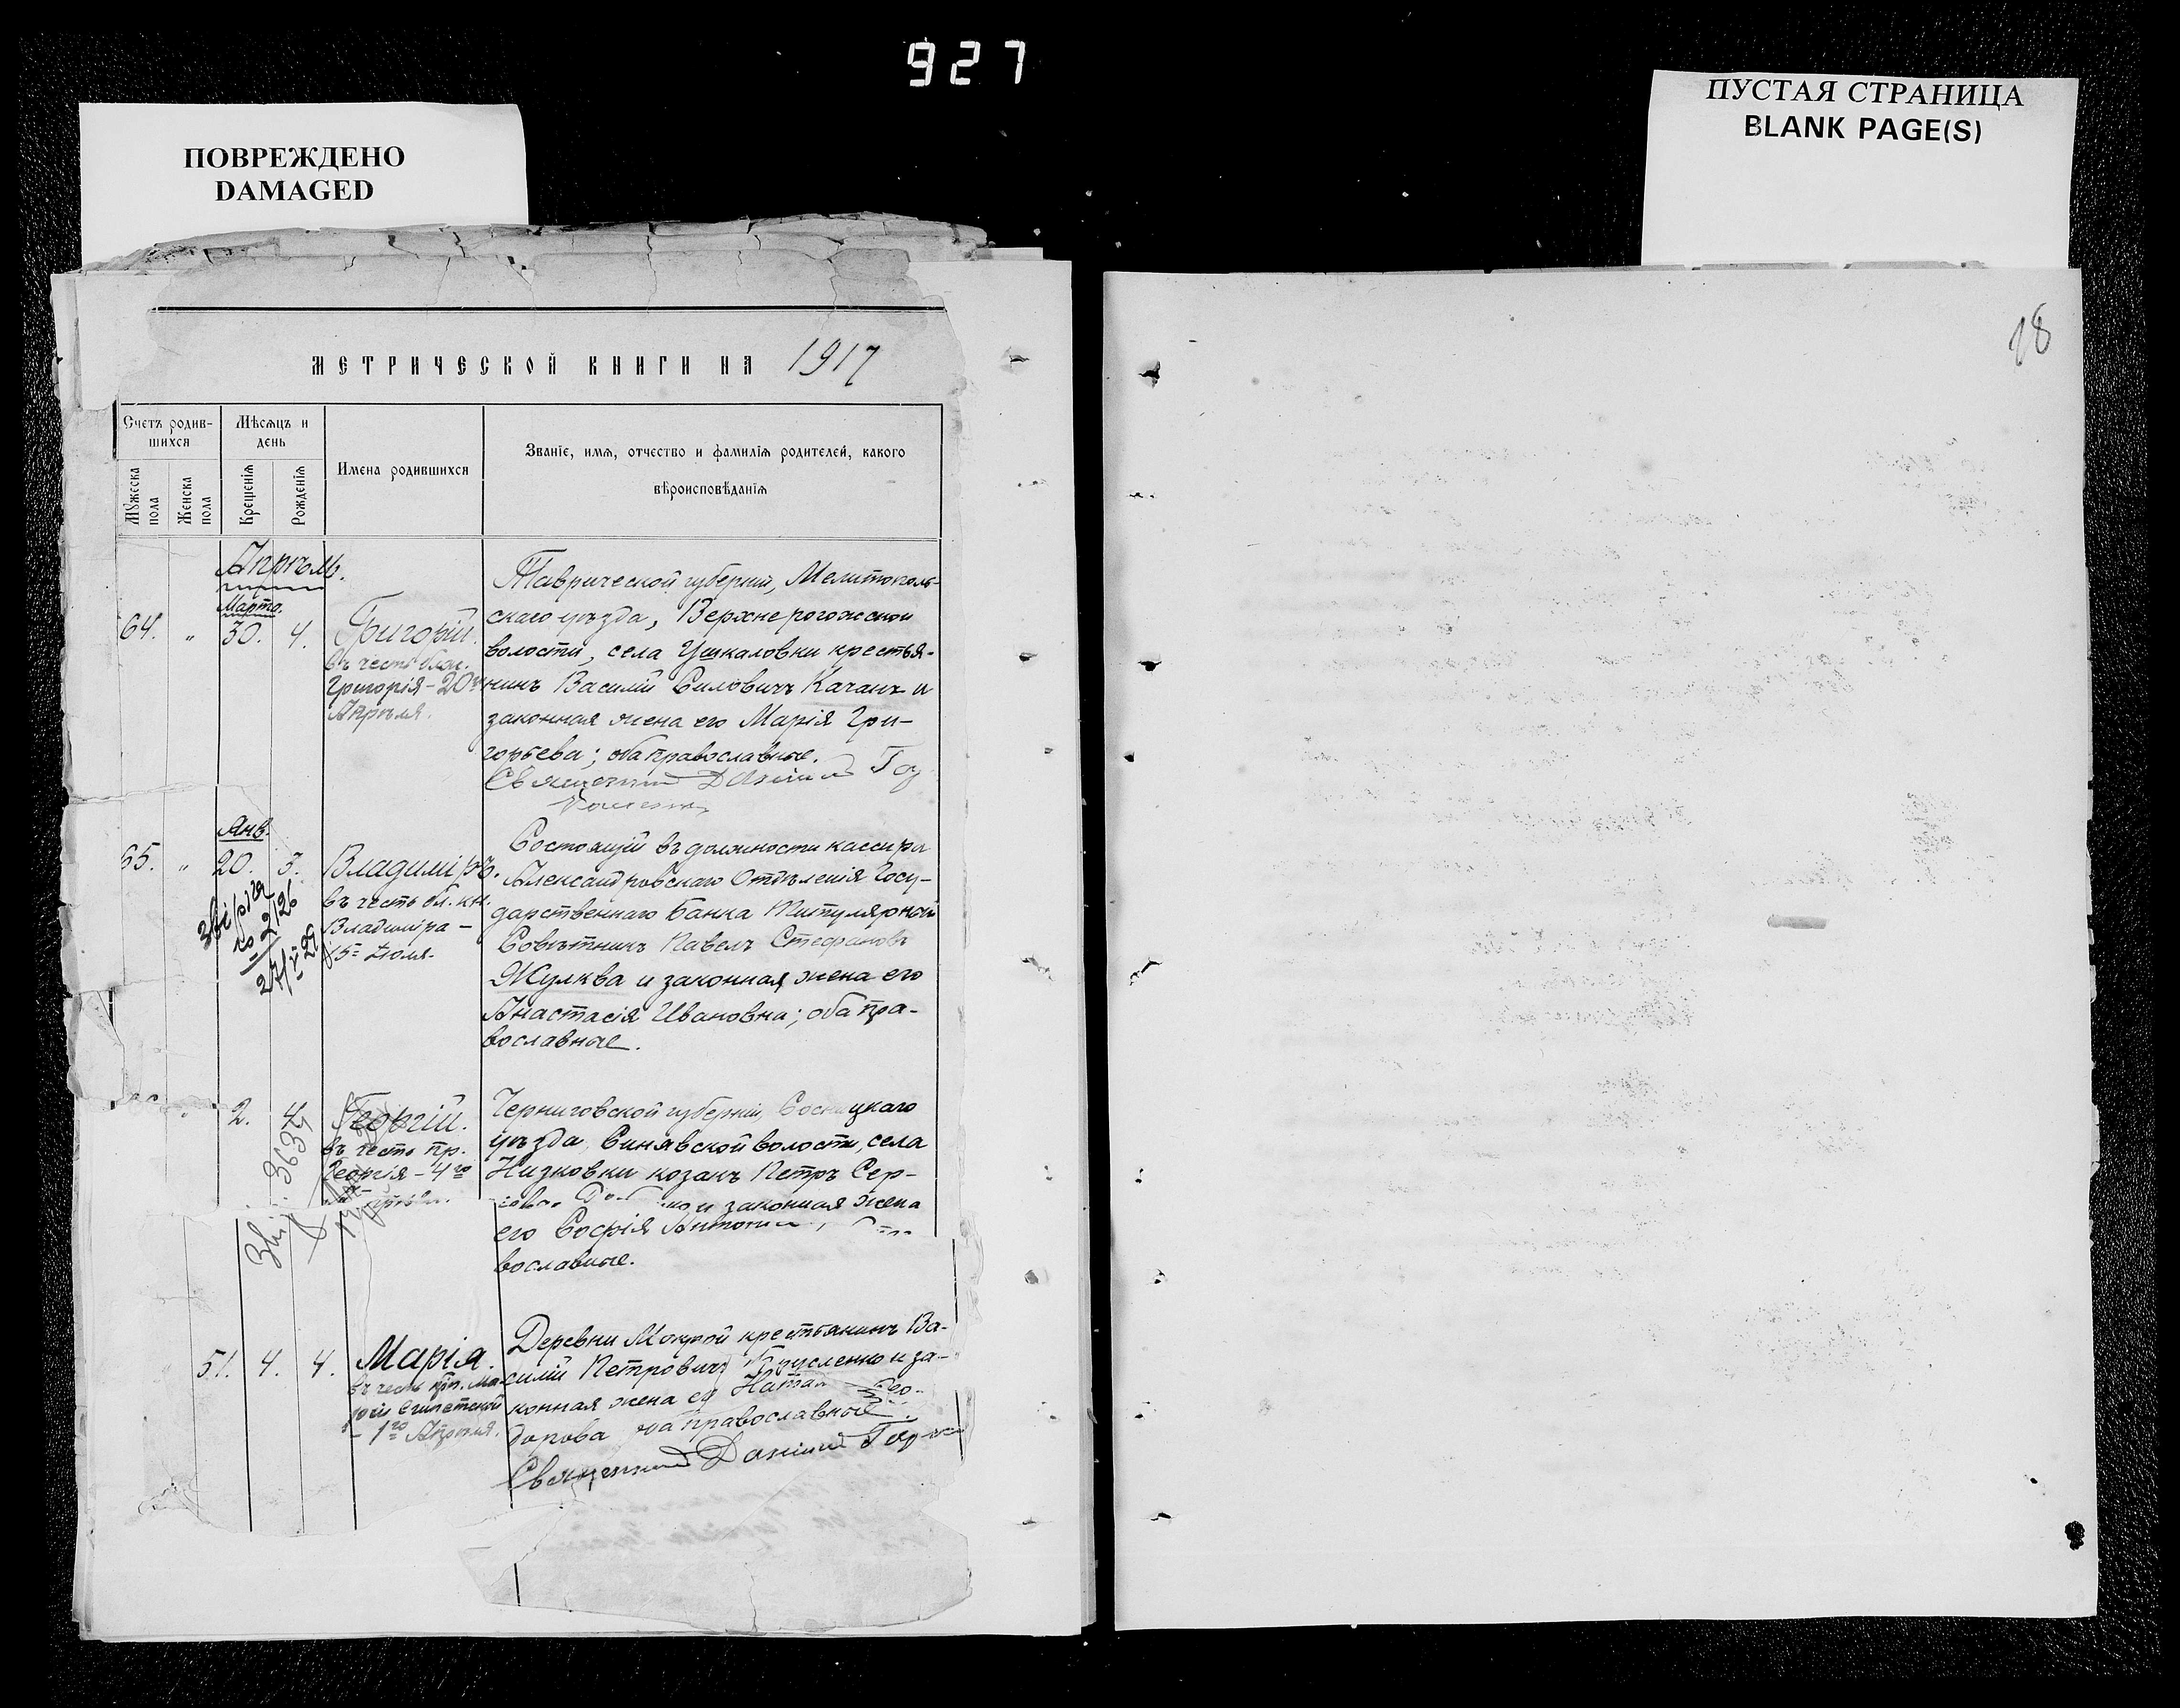 927
ПОВРЕЖДЕНО
DAMAGED
ПУСТАЯ СТРАНИЦА
BLANK PAGE(S)
18
МЕТРИЧЕСКОЙ КНИГИ НА 1917
Счетъ родив-
шихся
Мѣсяцъ и
день
Мужеска
пола
Женска
пола
Крещенія
Рожденія
Имена родившихся
Званіе, имя, отчество и фамилія родителей, какого
вѣроисповѣданія
Апрѣль.
Марта.
64. " 30. 4. Григорій.
въ честь
Григорія - 20го
Апрѣля.
Таврической губерніи, Мелитополь-
скаго уѣзда, Верхнерогожской
волости, села Ушкаловки крестья-
нинъ Василій Силовичъ Качанъ и
законная жена его Марія Гри-
горьева; оба православные.
Священникъ Даніилъ
Янв.
65. " 20. 3. Владиміръ.
въ честь бл. кн.
Владиміра -
15= Іюля.
Состоящій въ должности кассира
Александровскаго Отдѣленія Госу-
дарственнаго Банка Титулярный
Совѣтникъ Павелъ Стефановъ
Жулква и законная жена его
Анастасія Ивановна; оба пра-
вославные.
2. 4. Георгій.
въ честь пр.
Георгія - 4го
3634
Черниговской губерніи, Сосницкаго
уѣзда, Синявской волости, села
Низковки козакъ Петръ Сер-
и законная жена
его Софія
вославные.
51. 4. 4. Марія.
въ честь прп. Ма-
ріи Египетской
- 1го Апрѣля.
Деревни Мокрой крестьянинъ Ва-
силій Петровичъ и за-
конная жена его
дорова православные.
Священникъ Даніилъ